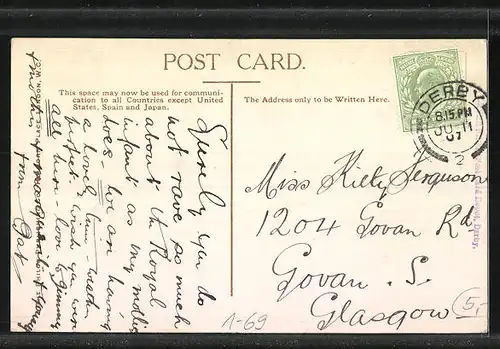 POST CARD.
This space may now be used for communi-
cation to all Countries except United
States, Spain and Japan.
The Address only to be Written Here.
DERBY
8.15 PM
JU 11
07
2
Surely you do
not rave so much
about the Royal
infant as my
does. We are having
a lovely time - weather
perfect, wish you were
all here - love to Jimmy
from
Miss Kitty Ferguson
1204 Govan Rd
Govan. S.
Glasgow
1-69
5,-